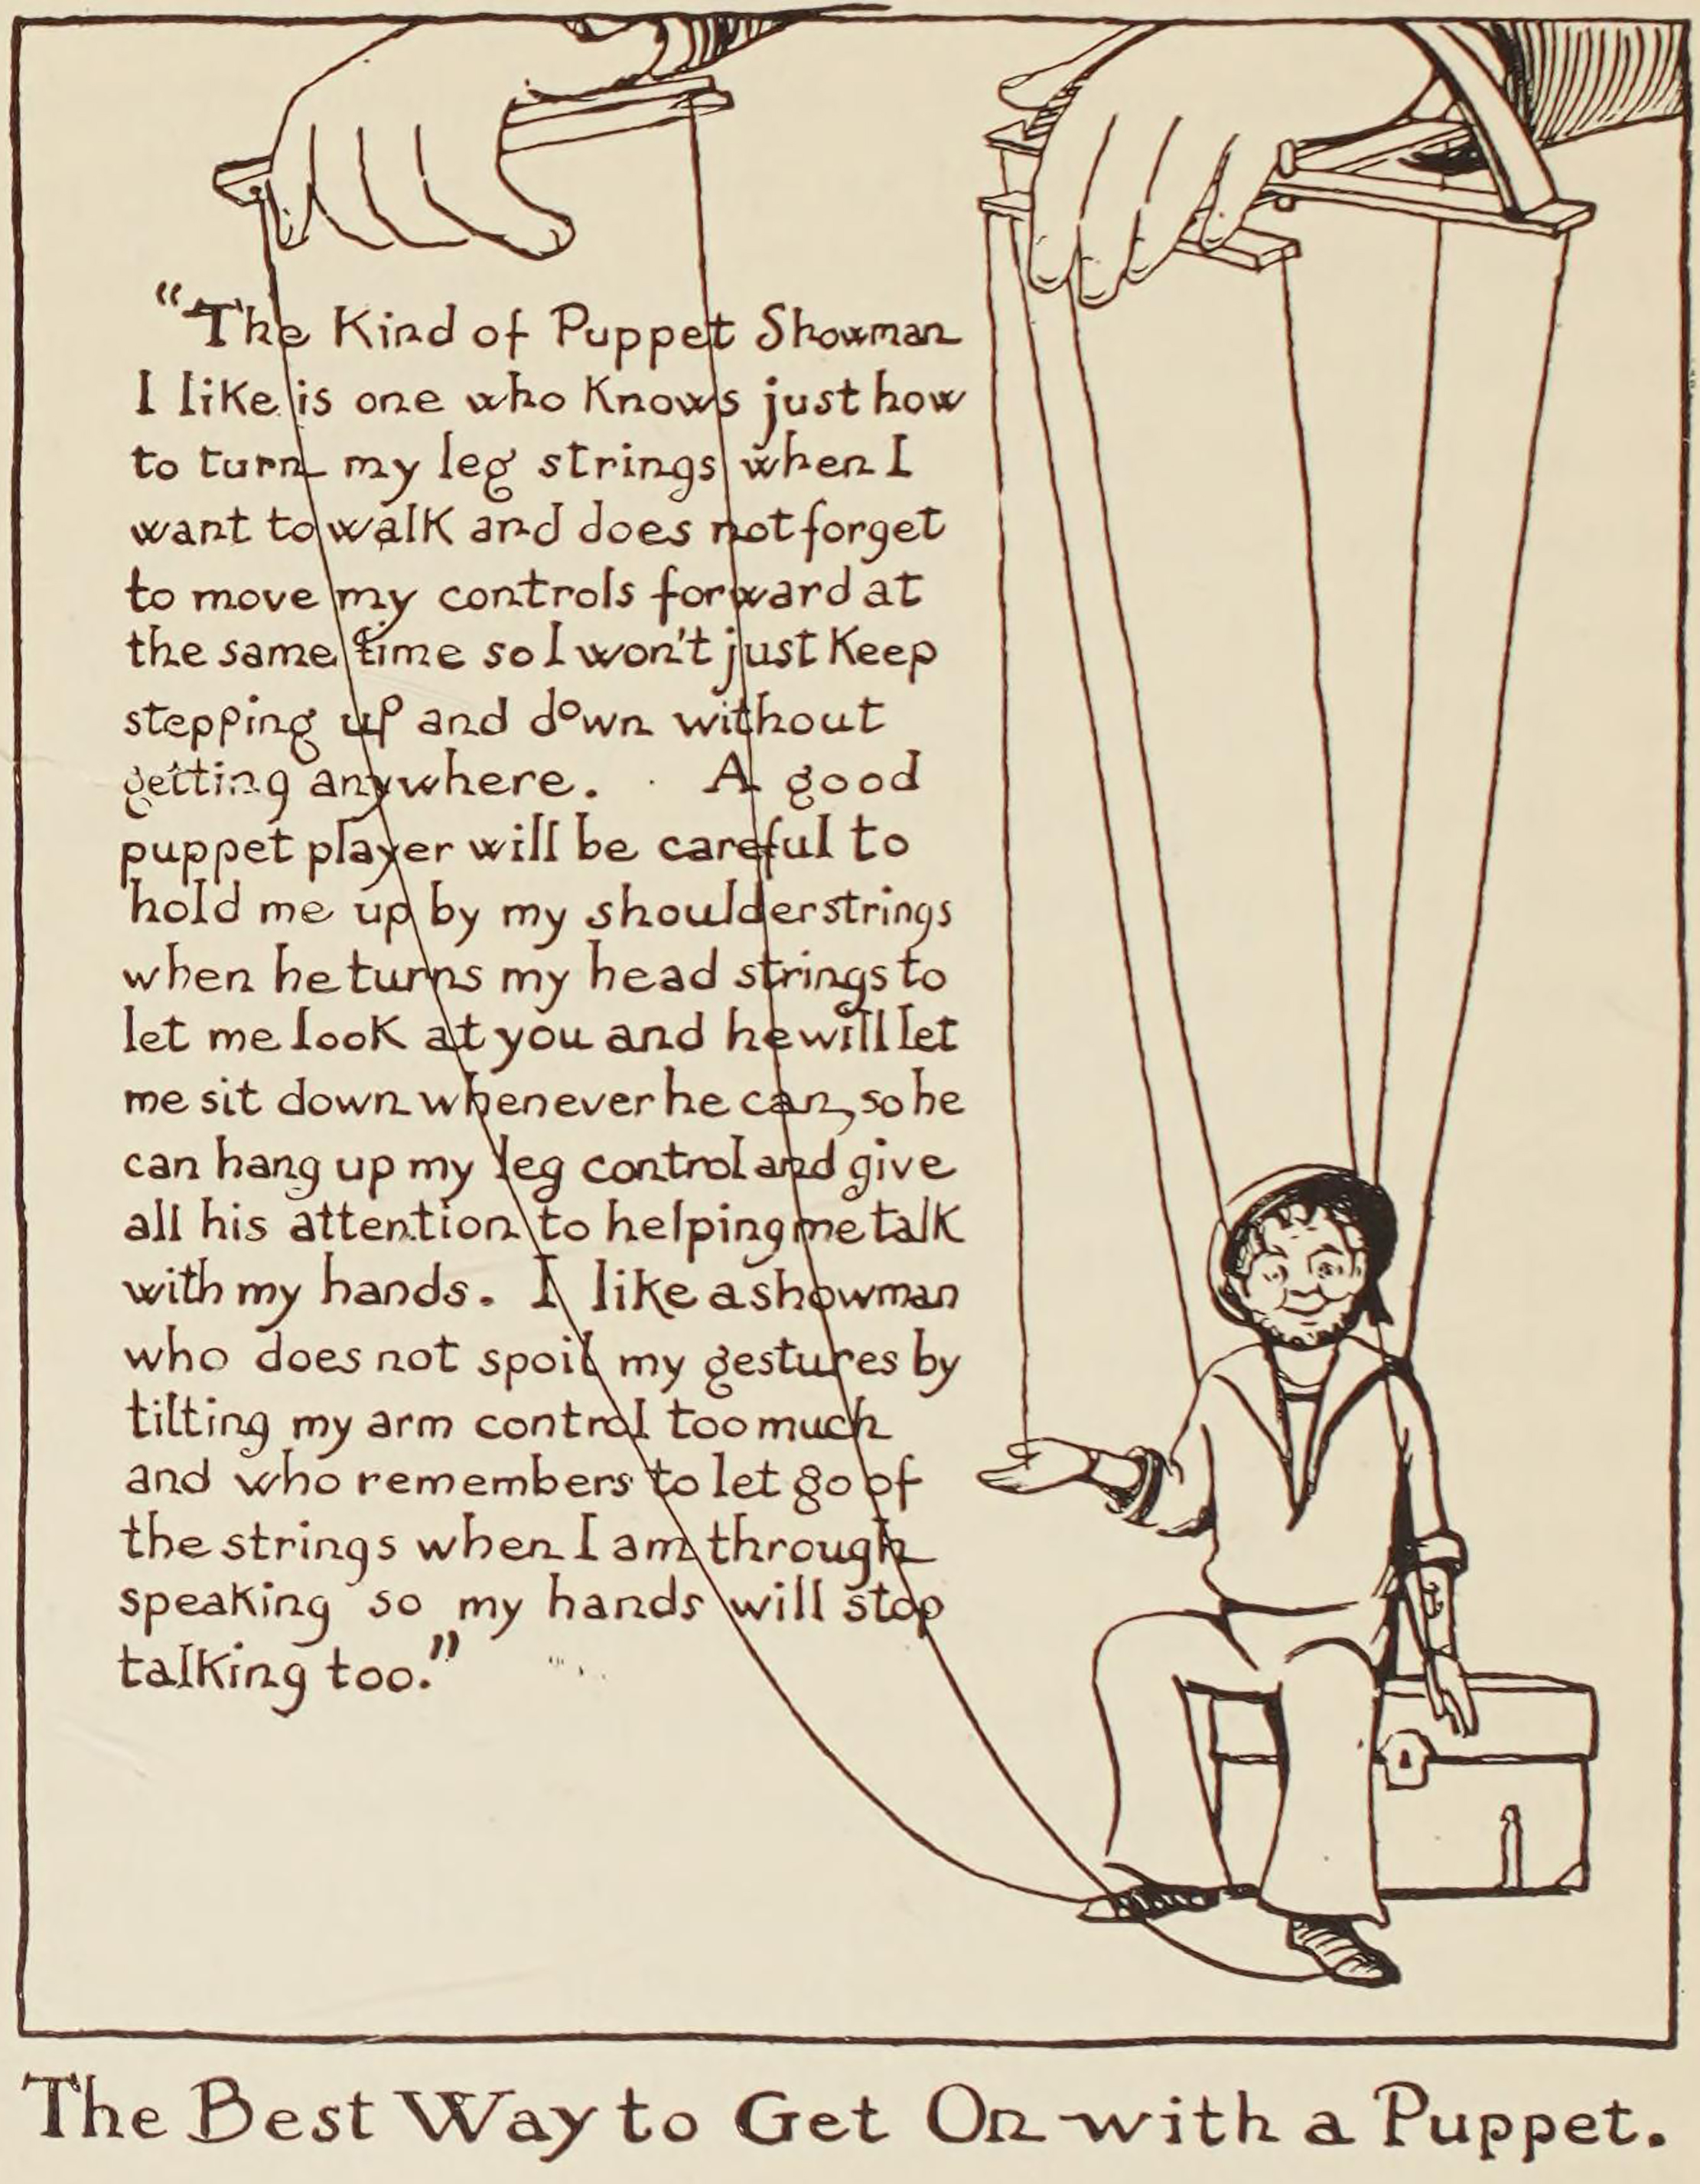 "The Kind of Puppet Showman
I like is one who knows just how
to turn my leg strings when I
want to walk and does not forget
to move my controls forward at
the same time so I won't just keep
stepping up and down without
getting anywhere. A good
puppet player will be careful to
hold me up by my shoulder strings
when he turns my head strings to
let me look at you and he will let
me sit down whenever he can, so he
can hang up my leg control and give
all his attention to helping me talk
with my hands. I like a showman
who does not spoil my gestures by
tilting my arm control too much
and who remembers to let go of
the strings when I am through
speaking so my hands will stop
talking too."
The Best Way to Get On with a Puppet.